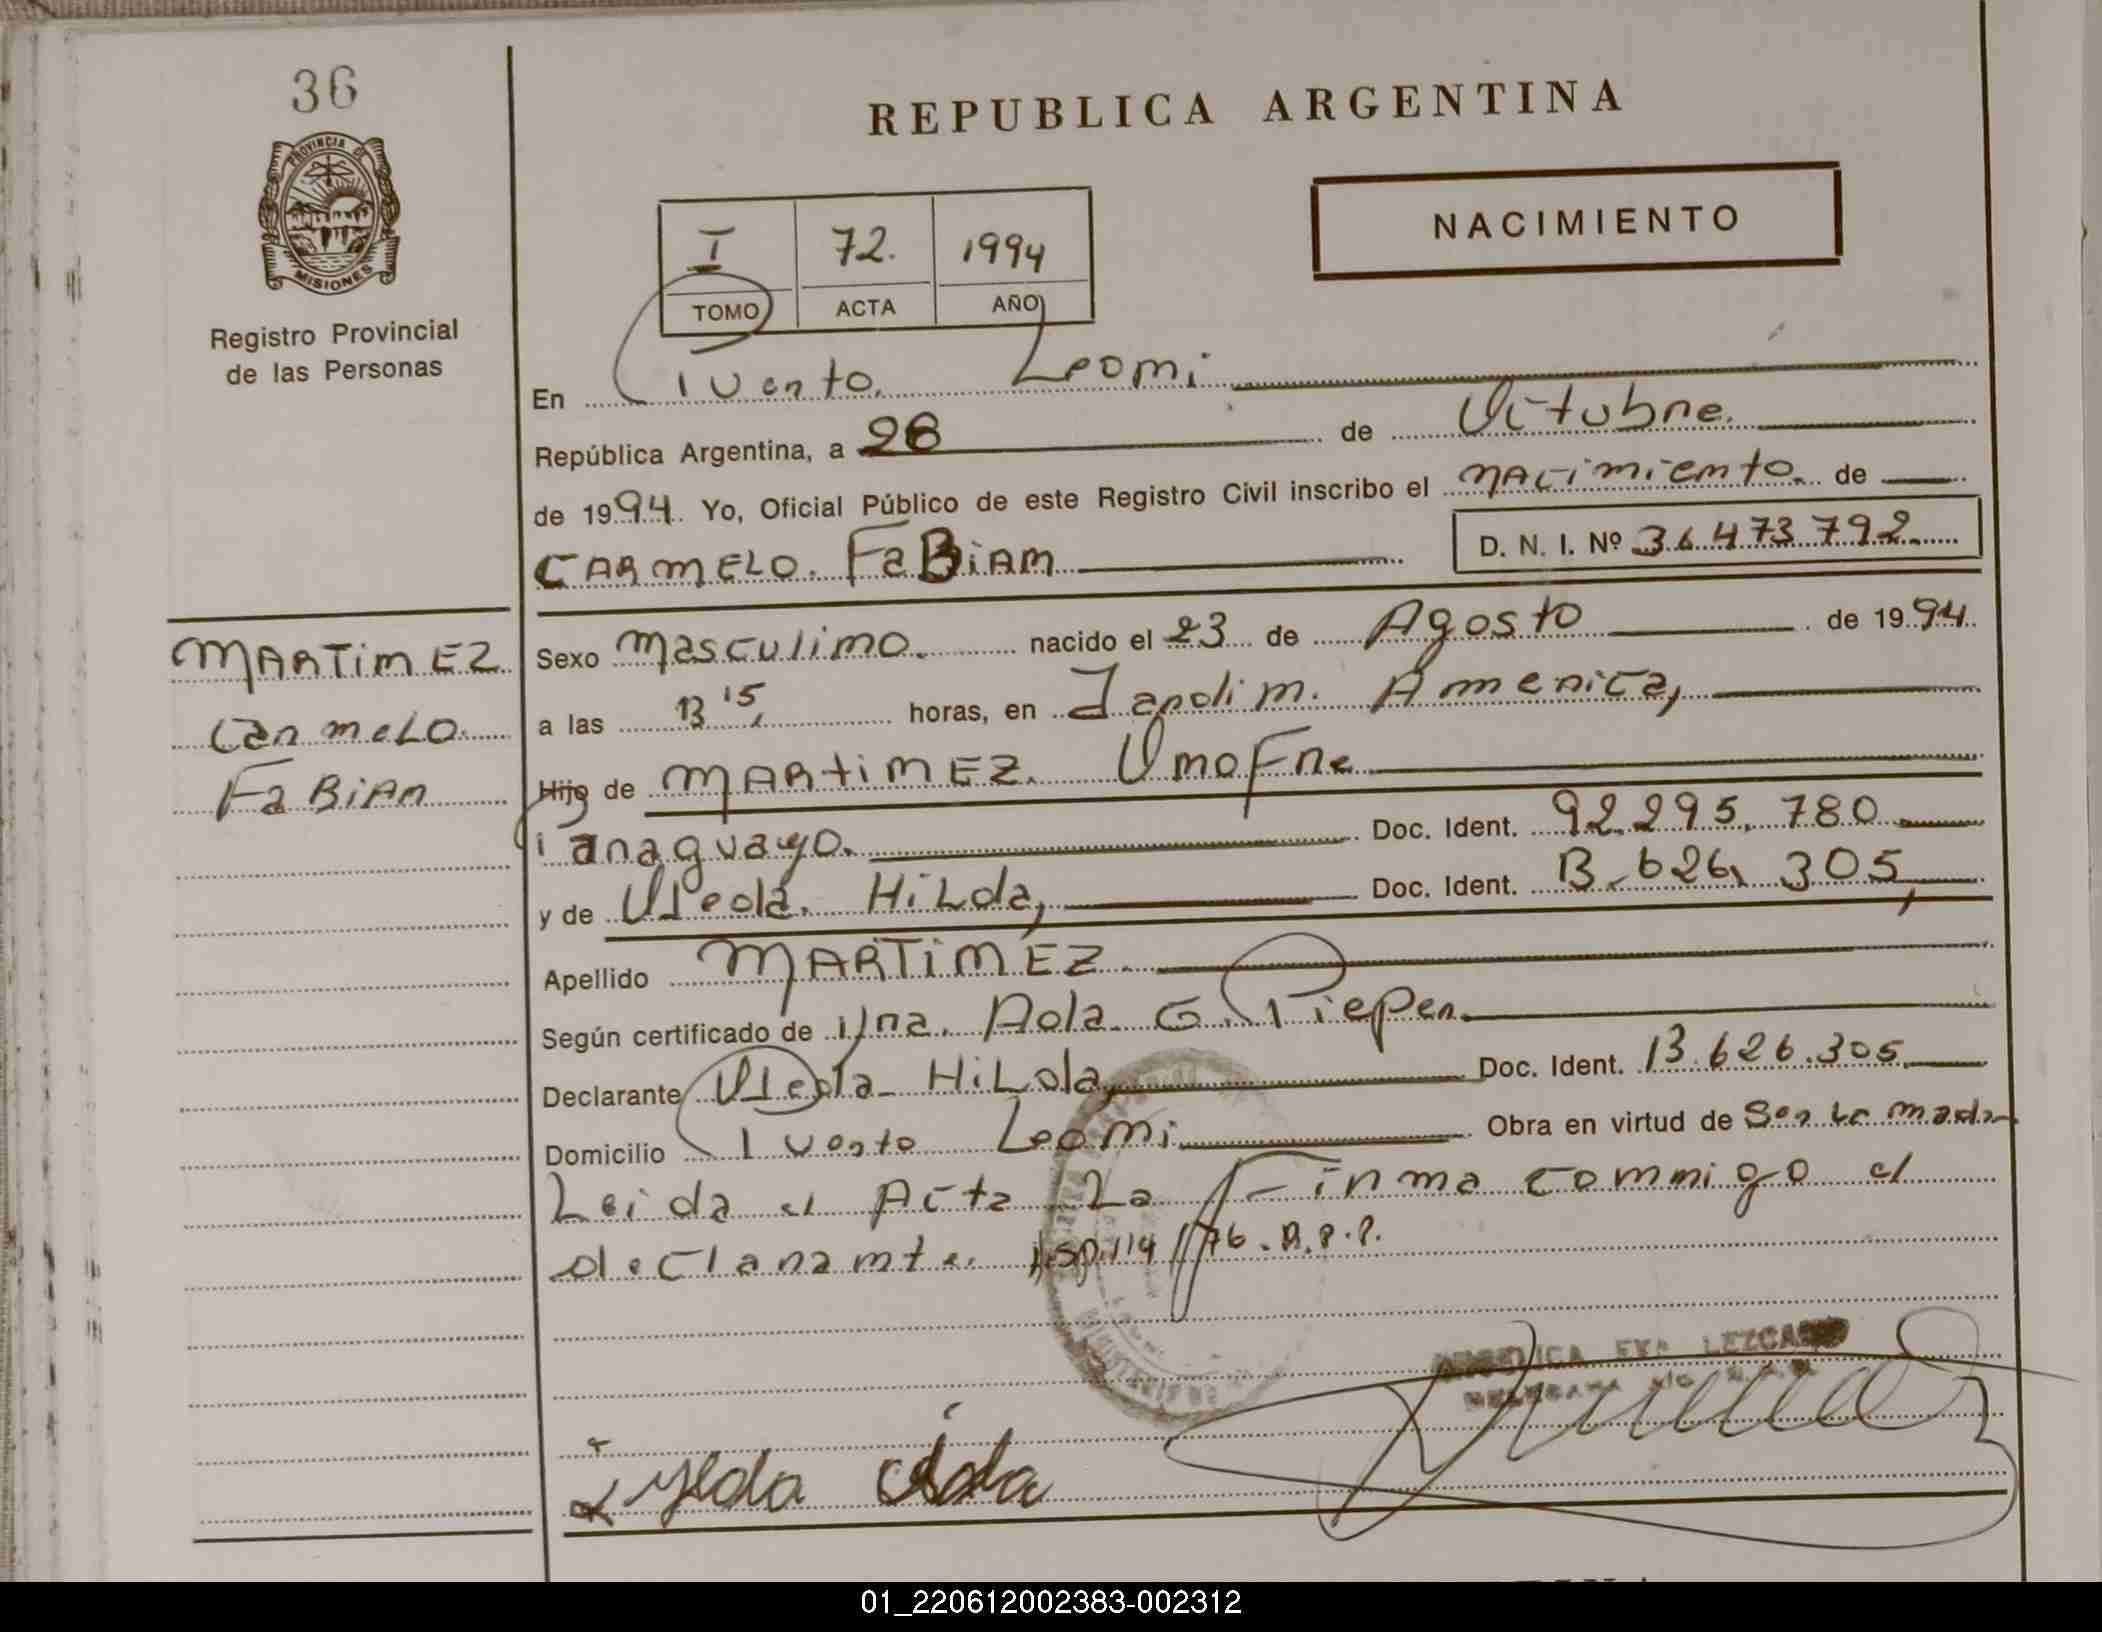 36
REPUBLICA ARGENTINA
PROVINCIA DE
MISIONES
Registro Provincial
de las Personas
NACIMIENTO
I 72. 1994
TOMO ACTA AÑO
En Puerto Leoni
República Argentina, a 28 de Octubre.
de 1994. Yo, Oficial Público de este Registro Civil inscribo el nacimiento. de
CARMELO. FaBiAN D. N. I. Nº 36.473.792
MARTiNEZ
CarmeLo.
FaBiAn
Sexo Masculino. nacido el 23 de Agosto de 1994.
a las 13 15, horas, en Jardin. America,
Hijo de MARTiNEZ. Onofre
Paraguayo. Doc. Ident. 92.295.780
y de Ojeda. HiLda, Doc. Ident. 13.626.305,
Apellido MARTiNEZ.
Según certificado de Dra. Dola. G. Pieper.
Declarante Ojeda HiLda, Doc. Ident. 13.626.305.
Domicilio Puerto Leoni Obra en virtud de Ser La madre
Leida el Acta La Firma conmigo el
declarante. Disp. 114/76. R.P.P.
LEZCANO
ylda
01_220612002383-002312